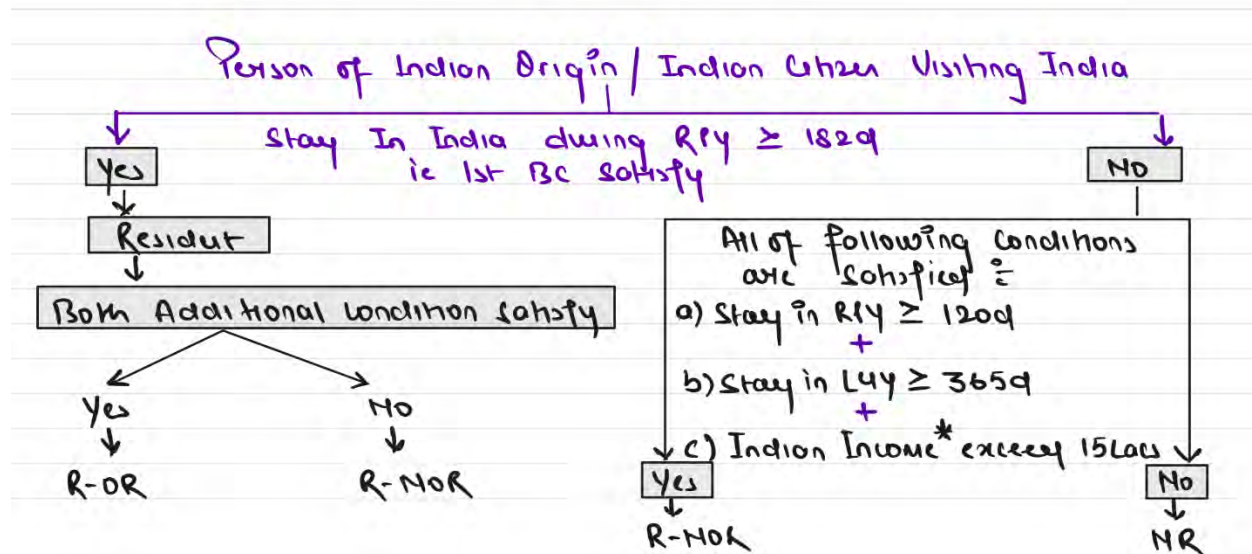 Person of Indian Origin / Indian Citizen Visiting India
Stay In India during RPY ≥ 182d
ie 1st BC Satisfy
Yes
NO
Resident
Both Additional Condition Satisfy
Yes
NO
R-OR
R-NOR
All of following Conditions
are Satisfied :
a) Stay in RPY ≥ 120d
+
b) Stay in L4Y ≥ 365d
+
c) Indian Income* exceed 15Lacs
Yes
No
R-NOR
NR